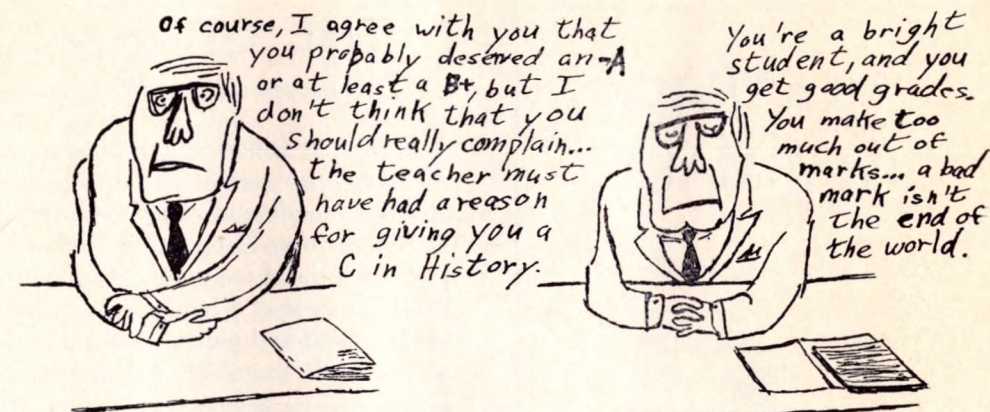 Of course, I agree with you that
you probably deserved an -A
or at least a B+, but I
don't think that you
should really complain...
the teacher must
have had a reason
for giving you a
C in History.
You're a bright
student, and you
get good grades.
You make too
much out of
marks... a bad
mark isn't
the end of
the world.